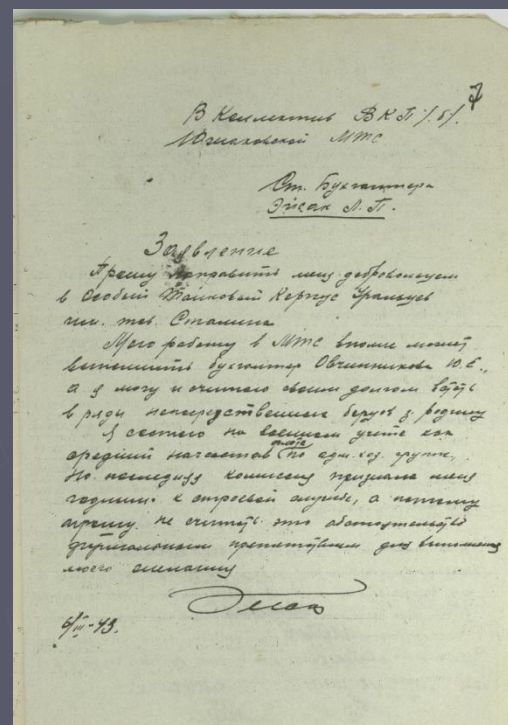 7
В Коллектив ВКП/б/.
МТС
Ст. Бухгалтера
Эйсак Л. П.
Заявление
Прошу направить меня добровольцем
в Особый Танковой Корпус Уральцев
им. тов. Сталина
Мою работу в МТС вполне может
выполнить бухгалтер Овчинникова Ю. Е.,
а я могу и считаю своим долгом встать
в ряды непосредственных борцов з родину
Я состою на военном учете как
средний начсостав по адм. хоз. группе,
но последняя комиссия признала меня
годным к строевой службе, а потому
прошу не считать это обстоятельство
препятствием для выполнения
моего желания
6/III-43.